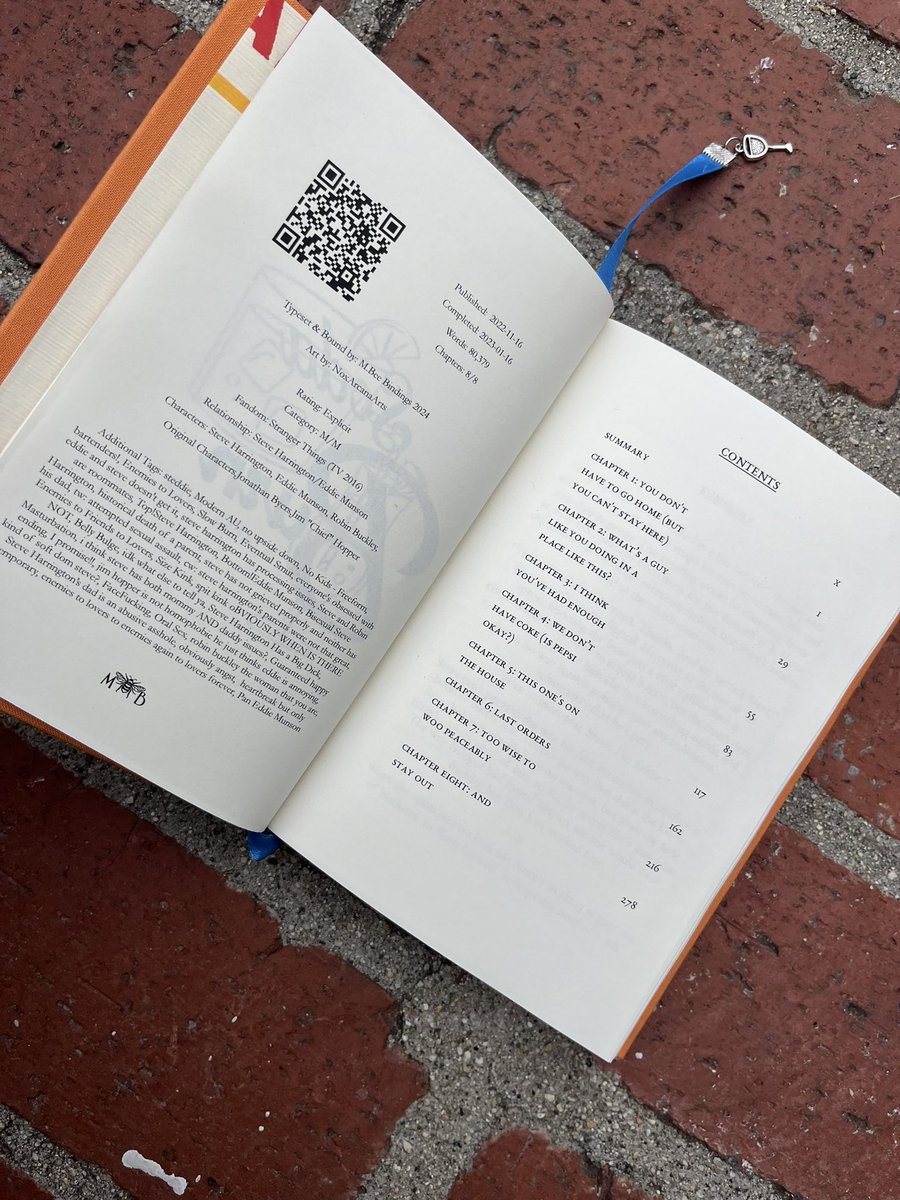 Published: 2022-11-16
Completed: 2023-01-16
Words: 80,379
Chapters: 8/8
Typeset & Bound by: M.Bee Bindings 2024
Art by: NoxArcanaArts
Rating: Explicit
Category: M/M
Fandom: Stranger Things (TV 2016)
Relationship: Steve Harrington/Eddie Munson
Characters: Steve Harrington, Eddie Munson, Robin Buckley,
Original Characters, Jonathan Byers, Jim "Chief" Hopper
Additional Tags: steddie, Modern AU, no upside down, No Kids - Freeform,
bartenders!, Enemies to Lovers, Slow Burn, Eventual Smut, everyone's obsessed with
eddie and steve doesn't get it, steve harrington has processing issues, Steve and Robin
are roommates, Top!Steve Harrington, Bottom!Eddie Munson, Bisexual Steve
Harrington, historical death of a parent, steve has not grieved properly and neither has
his dad, tw: attempted sexual assault, cw: steve harrington's parents were not that great,
Enemies to Friends to Lovers, Size Kink, spit kink oBVIOUSLY WHEN IS THERE
NOT, Belly Bulge, idk what else to tell ya, Steve Harrington Has a Big Dick,
Masturbation, i think steve has both mommy AND daddy issues?, Guaranteed happy
ending, I promise!!, jim hopper is not homophobic he just thinks eddie is annoying,
kind of soft dom steve?, FaceFucking, Oral Sex, robin buckley the woman that you are,
Steve Harrington's dad is an abusive asshole, obviously angst, heartbreak but only
temporary, enemies to lovers to enemies again to lovers forever, Pan Eddie Munson
M B
CONTENTS
SUMMARY x
CHAPTER 1: YOU DON'T
HAVE TO GO HOME (BUT
YOU CAN'T STAY HERE) 1
CHAPTER 2: WHAT'S A GUY
LIKE YOU DOING IN A
PLACE LIKE THIS? 29
CHAPTER 3: I THINK
YOU'VE HAD ENOUGH 55
CHAPTER 4: WE DON'T
HAVE COKE (IS PEPSI
OKAY?) 83
CHAPTER 5: THIS ONE'S ON
THE HOUSE 117
CHAPTER 6: LAST ORDERS 162
CHAPTER 7: TOO WISE TO
WOO PEACEABLY 216
CHAPTER EIGHT: AND
STAY OUT 278